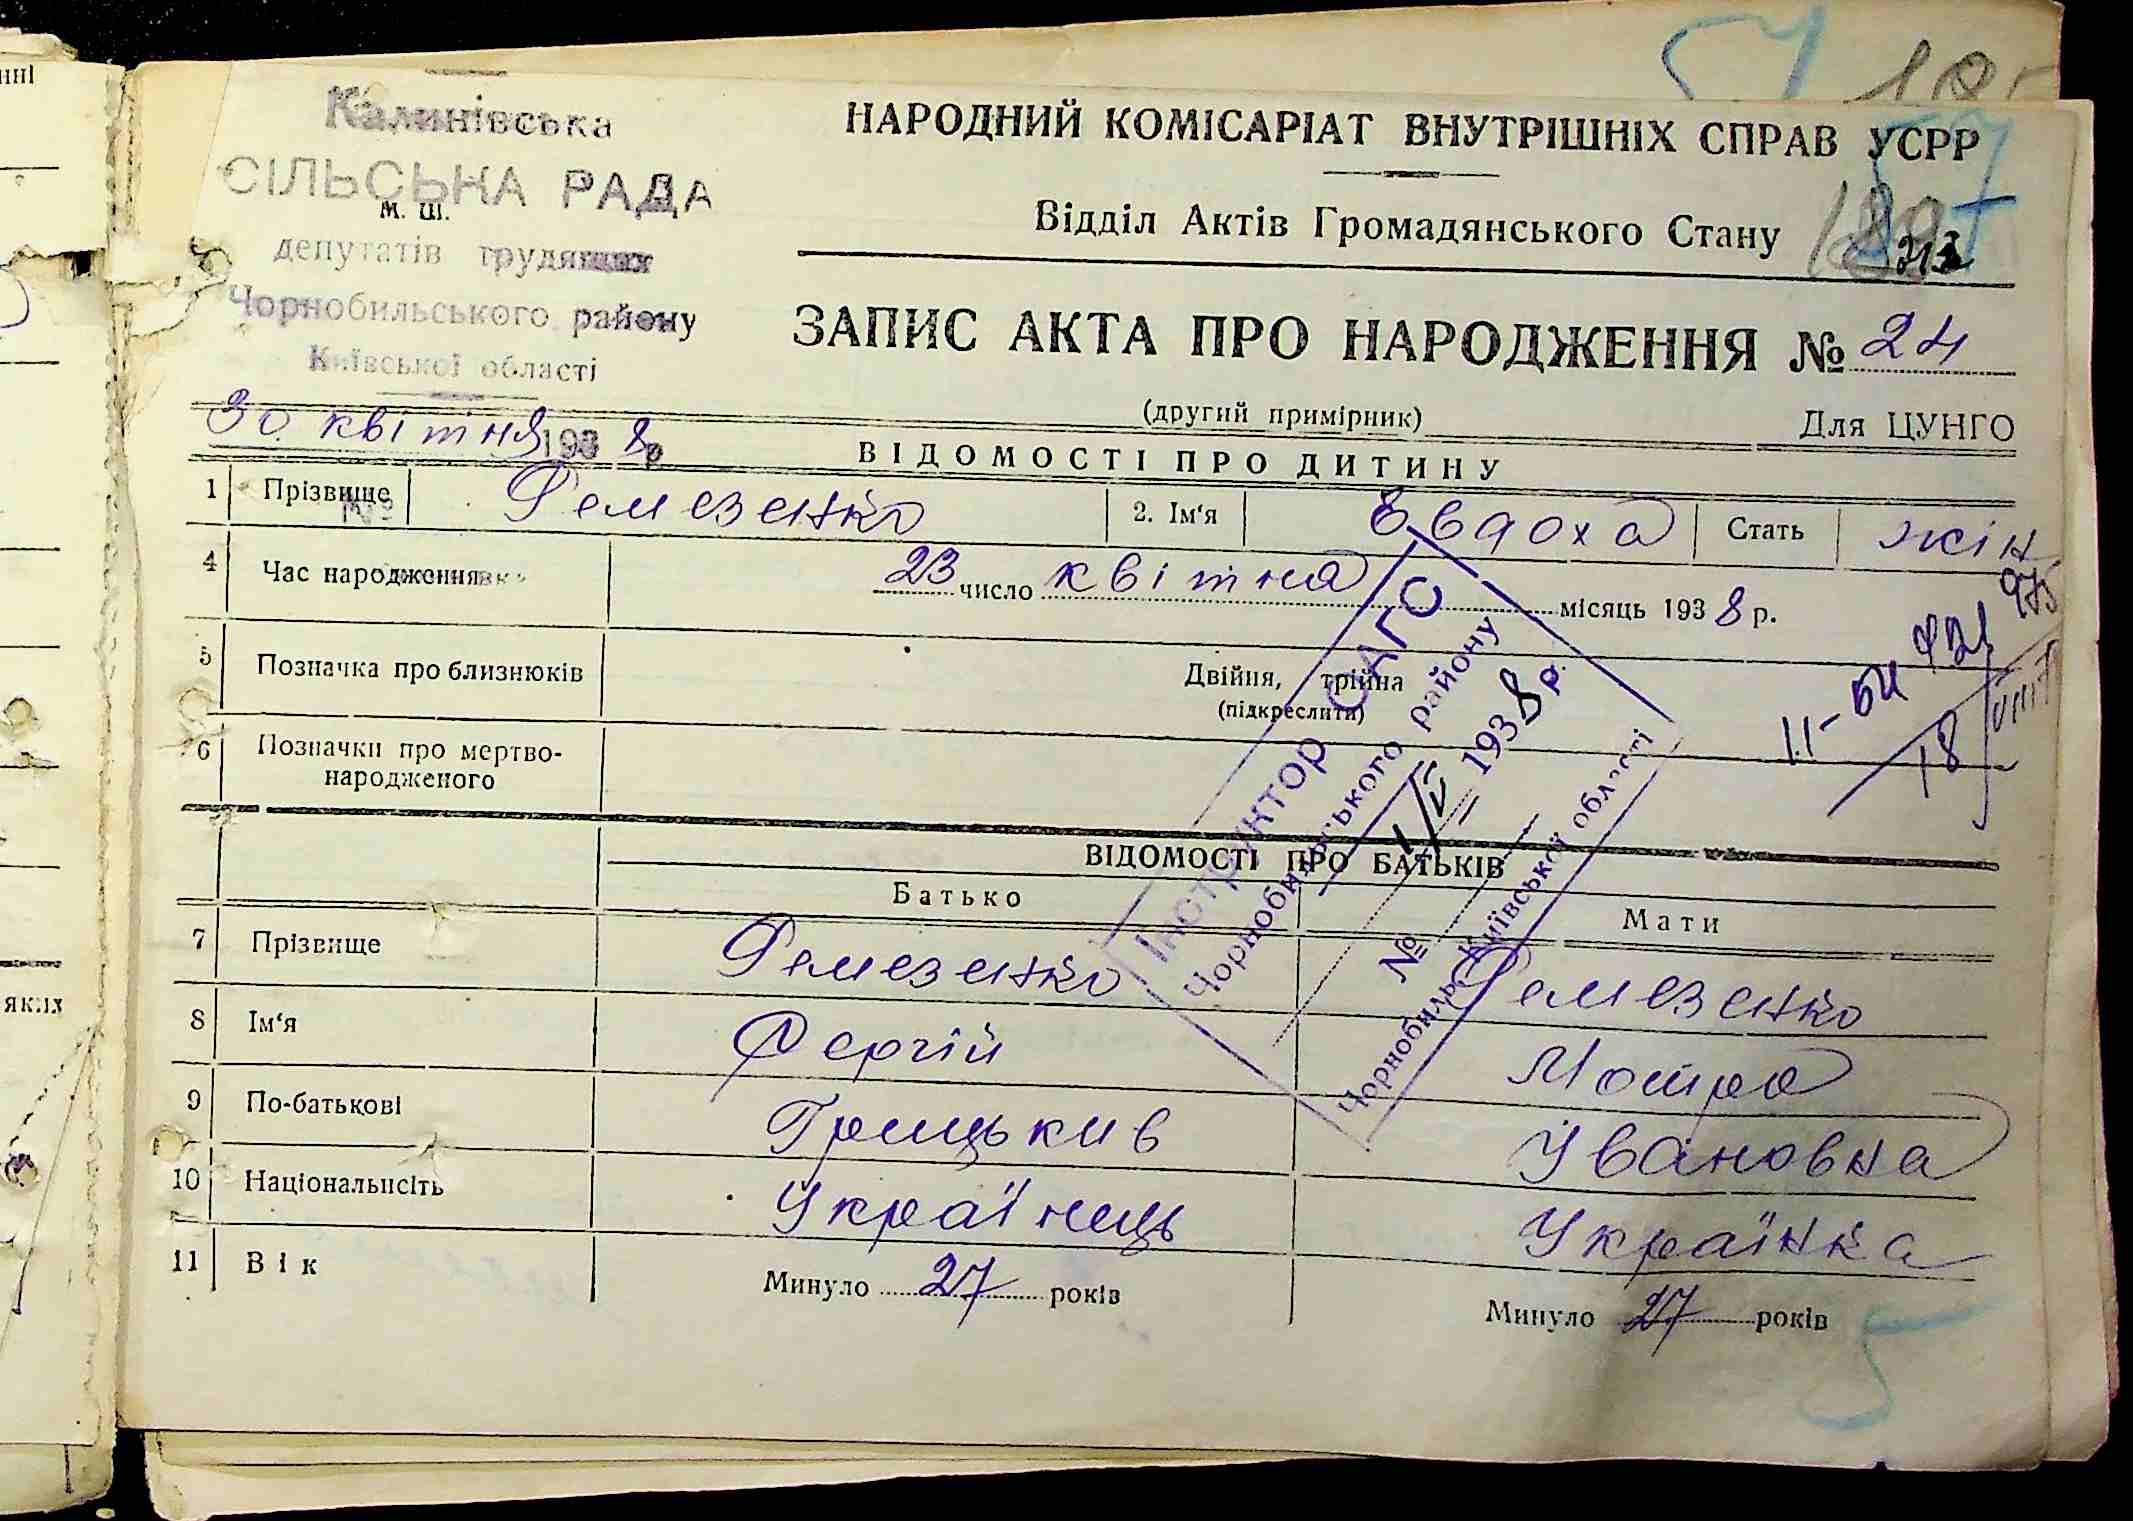 Калинівська
СІЛЬСЬКА РАДА
м. ш.
депутатів трудящих
Чорнобильського району
Київської області
30 квітня 1938 р
№
НАРОДНИЙ КОМІСАРІАТ ВНУТРІШНІХ СПРАВ УСРР
Відділ Актів Громадянського Стану
ЗАПИС АКТА ПРО НАРОДЖЕННЯ № 24
(другий примірник) Для ЦУНГО
ВІДОМОСТІ ПРО ДИТИНУ
1 Прізвище Ремезенко 2. Ім'я Євдоха Стать жін
4 Час народження 23 число квітня місяць 1938 р.
5 Позначка про близнюків Двійня, трійна
(підкреслити)
6 Позначки про мертво-
народженого
18
Інструктор ЗАГС
Чорнобильського району
1/V 1938 р.
№
Чорнобиль, Київської області
ВІДОМОСТІ ПРО БАТЬКІВ
Батько Мати
7 Прізвище Ремезенко Ремезенко
8 Ім'я Сергій Мотря
9 По-батькові Грицьків Івановна
10 Національність Українець Українка
11 Вік Минуло 27 років Минуло 27 років
5
нні
яких